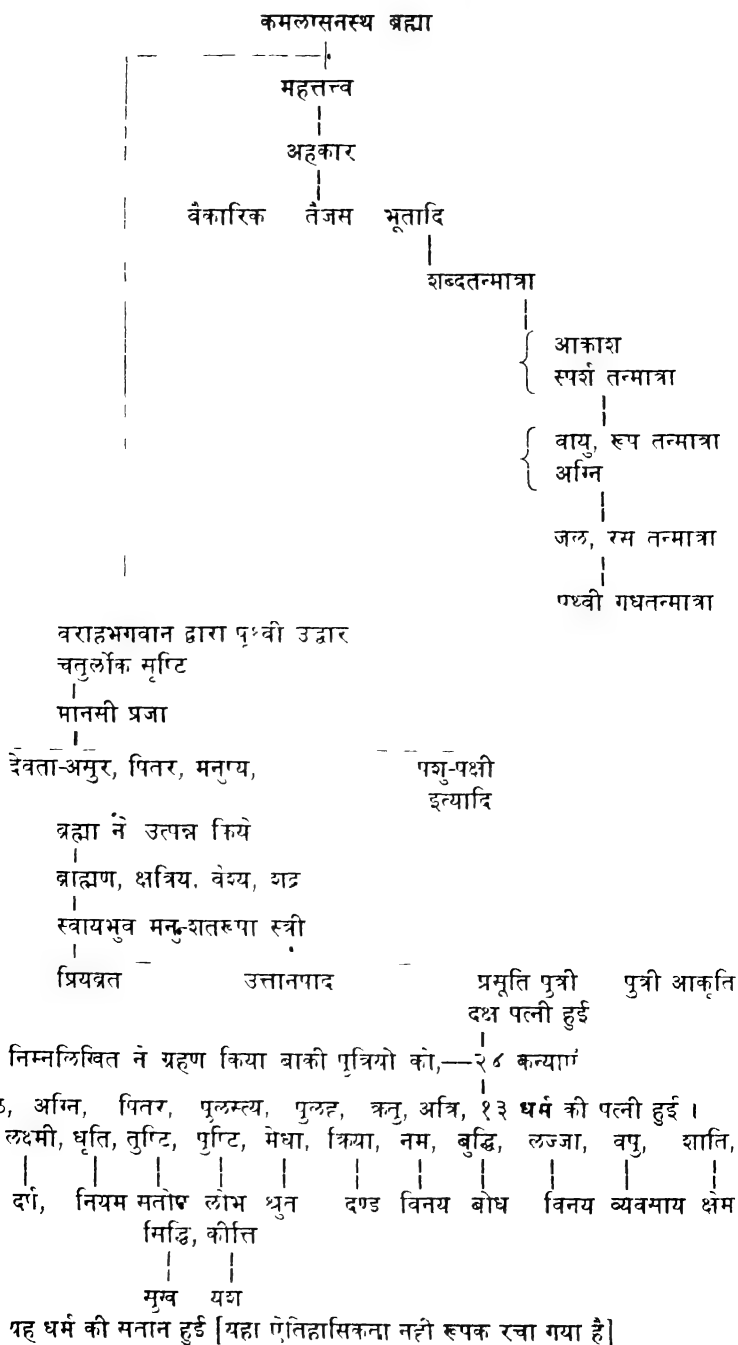 कमलासनस्थ ब्रह्मा
महत्तत्त्व
अहकार
वैकारिक तैजस भूतादि
शब्दतन्मात्रा
आकाश
स्पर्श तन्मात्रा
वायु, रूप तन्मात्रा
अग्नि
जल, रस तन्मात्रा
पृथ्वी गधतन्मात्रा
वराहभगवान द्वारा पृथ्वी उद्वार
चतुर्लोक सृष्टि
मानसी प्रजा
देवता-असुर, पितर, मनुष्य, पशु-पक्षी
इत्यादि
ब्रह्मा ने उत्पन्न किये
ब्राह्मण, क्षत्रिय, वेश्य, शद्र
स्वायभुव मनु-शतरूपा स्त्री
प्रियव्रत उत्तानपाद प्रसूति पुत्री पुत्री आकृति
दक्ष पत्नी हुई
निम्नलिखित ने ग्रहण किया बाकी पुत्रियो को,—२४ कन्याएं
अग्नि, पितर, पुलस्त्य, पुलह, ऋतु, अत्रि, १३ धर्म की पत्नी हुई ।
लक्ष्मी, धृति, तुष्टि, पुष्टि, मेधा, क्रिया, नम, बुद्धि, लज्जा, वपु, शाति,
दर्प, नियम सतोष लोभ श्रुत दण्ड विनय बोध विनय व्यवसाय क्षेम
सिद्धि, कीर्त्ति
सुख यश
यह धर्म की सतान हुई [यहा ऐतिहासिकता नही रूपक रचा गया है]